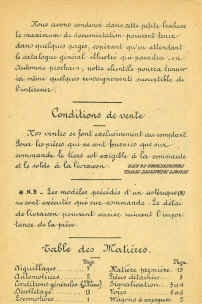 Nous avons condensé dans cette petite brochure
le maximum de documentation pouvant tenir
dans quelques pages, espérant qu'en attendant
le catalogue général illustré qui paraîtra en
Automne prochain, notre clientèle pourra trouver
ici-même quelques renseignements susceptible de
l'intéresser.
Conditions de vente
Nos ventes se font exclusivement au comptant
Pour les pièces qui ne sont fournies que sur
commande le tiers est exigible à la commande
et le solde à la livraison.
N.B. - Les modèles précédés d'un astérisque (*)
ne sont exécutés que sur commande. Le délai
de livraison pouvant varier suivant l'impor-
tance de la pièce.
Table des Matières.
Page Page
Aiguillages Matière première
Automotrices Pièces détachées
Conditions générales Signalisation
Outillage Voies
Locomotives Wagons à voyageurs